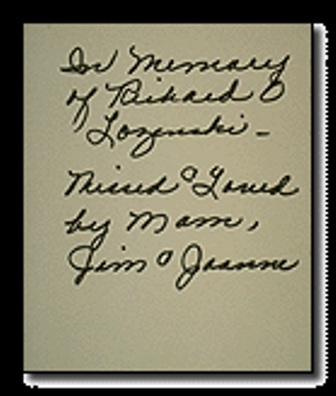 In Memory
of Richard
Lozinski -
Missed & Loved
by Mom,
Jim & Joanne